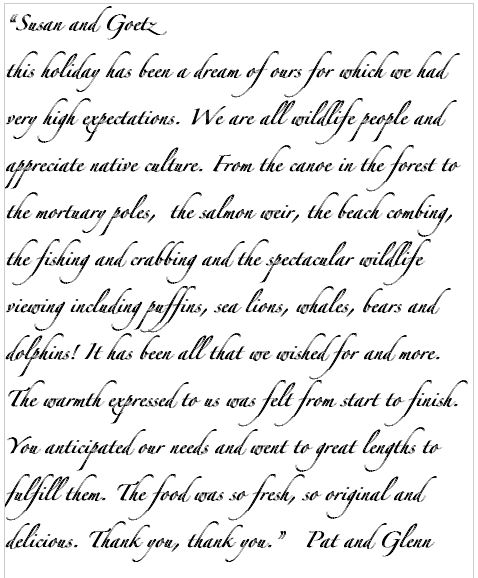 “Susan and Goetz
this holiday has been a dream of ours for which we had
very high expectations. We are all wildlife people and
appreciate native culture. From the canoe in the forest to
the mortuary poles, the salmon weir, the beach combing,
the fishing and crabbing and the spectacular wildlife
viewing including puffins, sea lions, whales, bears and
dolphins! It has been all that we wished for and more.
The warmth expressed to us was felt from start to finish.
You anticipated our needs and went to great lengths to
fulfill them. The food was so fresh, so original and
delicious. Thank you, thank you.” Pat and Glenn